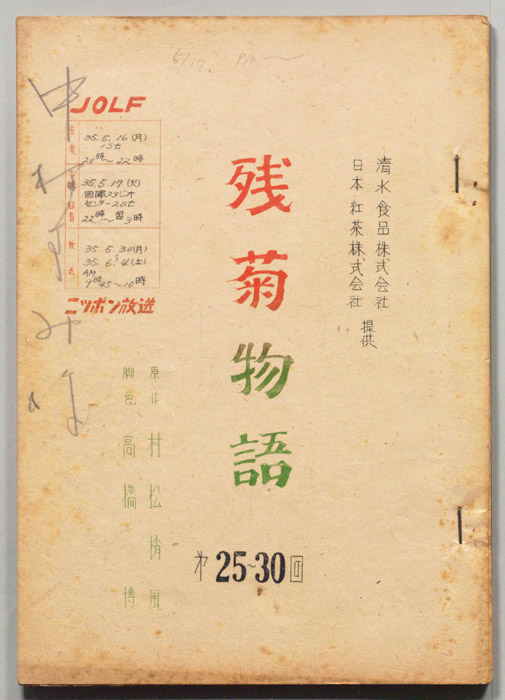 5/17. P10〜
JOLF
35.5.16(月)
1st
20時〜22時
35.5.17(火)
国際スタジオ
センター2st
22時〜翌3時
放送
35.5.30(月)
35.6.4(土)
AM
9時45〜10時
ニッポン放送
清水食品株式会社
日本紅茶株式会社
提供
残菊物語
原作 村松梢風
脚色 高橋博
第25~30回